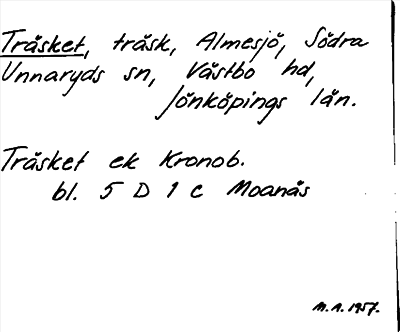 Träsket, träsk, Almesjö, Södra
Unnaryds sn, Västbo hd,
Jönköpings län.
Träsket ek Kronob.
bl. 5 D 1 c Moanäs
M. A. 1957.